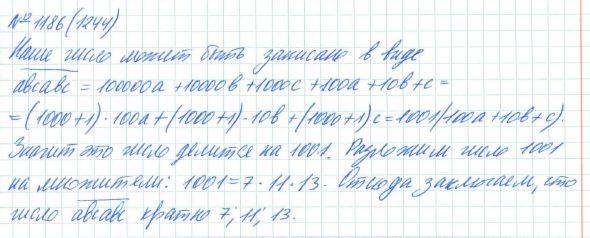 № 1186 (1244)
Наше число может быть записано в виде
авсавс = 100000а + 10000в + 1000с + 100а + 10в + с =
= (1000+1) · 100а + (1000+1) · 10в + (1000+1) с = 1001(100а + 10в + с).
Значит это число делится на 1001. Разложим число 1001
на множители: 1001 = 7 · 11 · 13. Отсюда заключаем, что
число авсавс кратно 7; 11; 13.